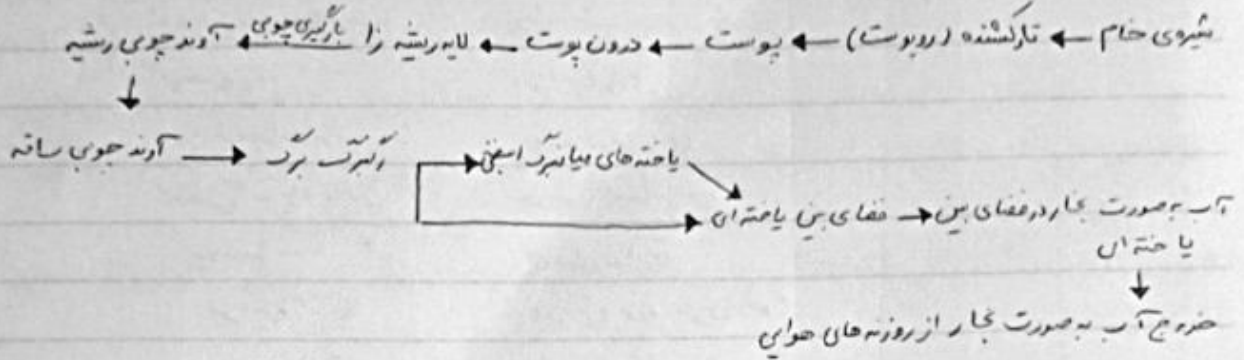 شیره‌ی خام ← تارکشنده (روپوست) ← پوست ← درون پوست ← لایه ریشه زا ← بارگیری چوبی آوند چوبی ریشه
آوند چوبی ساقه → رگبرگ برگ → یاخته‌های میانبرگ اسفنجی
فضای بین یاخته‌ای → آب به صورت بخار در فضای بین
یاخته‌ای
خروج آب به صورت بخار از روزنه‌های هوایی